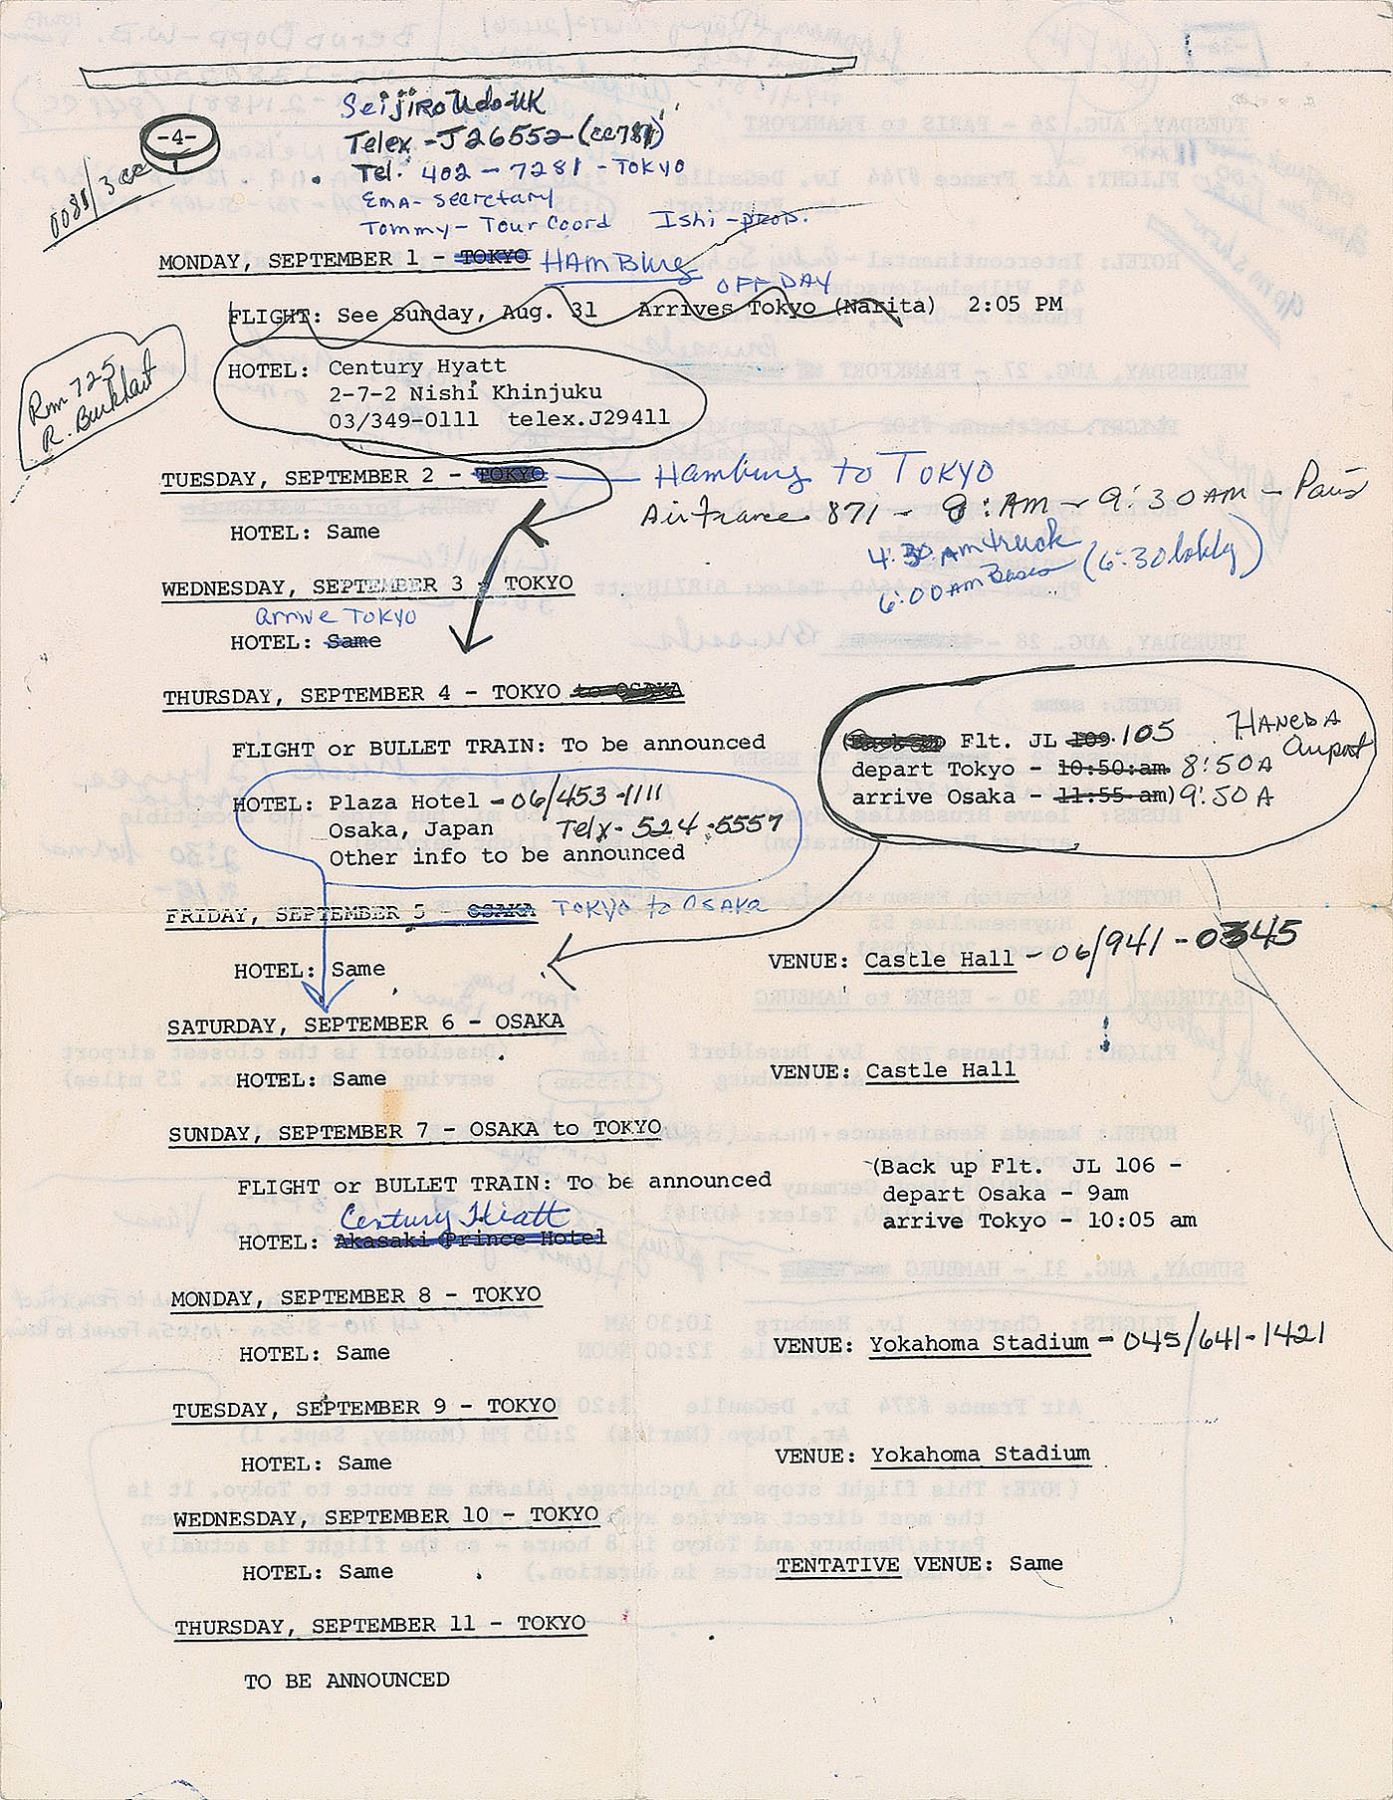 Seijiro Udo-UK
-4-
Telex - J26552 - (cc781)
0081/3
Tel. 402 - 7281 - TOKYO
EMA - Secretary
Tommy - Tour Coord Ishi - prod.
MONDAY, SEPTEMBER 1 - TOKYO HAMBURG
OFF DAY
FLIGHT: See Sunday, Aug. 31 Arrives Tokyo (Narita) 2:05 PM
Rm 725
R. Burkhart
HOTEL: Century Hyatt
2-7-2 Nishi Khinjuku
03/349-0111 telex.J29411
TUESDAY, SEPTEMBER 2 - TOKYO Hamburg to TOKYO
Air France 871 - 8:AM - 9:30 AM - Paris
HOTEL: Same
4:30 AM truck
6:00 AM (6:30 lobby)
WEDNESDAY, SEPTEMBER 3 - TOKYO
arrive TOKYO
HOTEL: Same
THURSDAY, SEPTEMBER 4 - TOKYO to OSAKA
FLIGHT or BULLET TRAIN: To be announced
Flt. JL 109 105 HANEDA Airport
depart Tokyo - 10:50:am 8:50A
arrive Osaka - 11:55 am) 9:50 A
HOTEL: Plaza Hotel - 06/453-1111
Osaka, Japan Telx - 524-5557
Other info to be announced
FRIDAY, SEPTEMBER 5 - OSAKA TOKYO to OSAKA
HOTEL: Same VENUE: Castle Hall - 06/941-0345
SATURDAY, SEPTEMBER 6 - OSAKA
HOTEL: Same VENUE: Castle Hall
SUNDAY, SEPTEMBER 7 - OSAKA to TOKYO
FLIGHT or BULLET TRAIN: To be announced
(Back up Flt. JL 106 -
depart Osaka - 9am
arrive Tokyo - 10:05 am
Century Hiatt
HOTEL: Akasaki Prince Hotel
MONDAY, SEPTEMBER 8 - TOKYO
HOTEL: Same VENUE: Yokahoma Stadium - 045/641-1421
TUESDAY, SEPTEMBER 9 - TOKYO
HOTEL: Same VENUE: Yokahoma Stadium
WEDNESDAY, SEPTEMBER 10 - TOKYO
HOTEL: Same TENTATIVE VENUE: Same
THURSDAY, SEPTEMBER 11 - TOKYO
TO BE ANNOUNCED